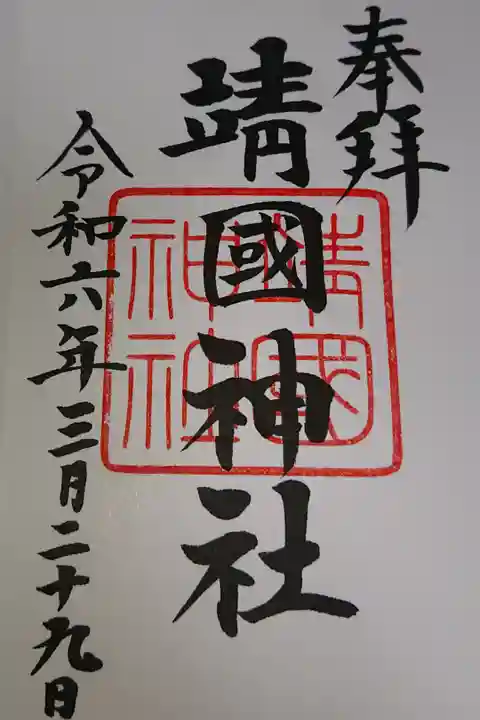 奉拝
靖國神社
靖國神社
令和六年三月二十九日